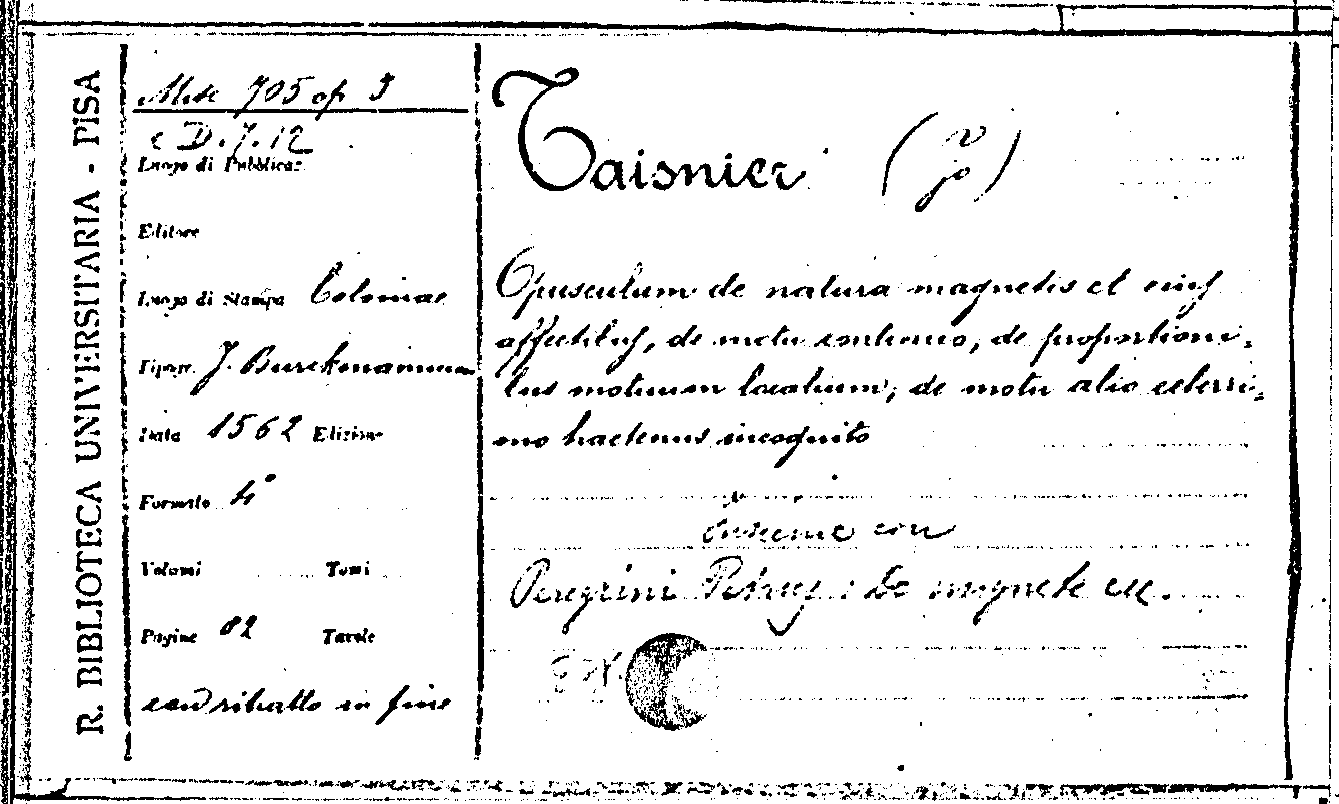 R. BIBLIOTECA UNIVERSITARIA - PISA
Misc 705 op 3
c D.7.12
Luogo di Pubblicaz.
Editore
Luogo di Stampa Coloniae
Tipogr. J. Birckmannum
Data 1562 Edizione
Formato 4°
Volumi Tomi
Pagine 82 Tavole
con ritratto in fine
Taisnier (
jo)
Opusculum de natura magnetis et eius
effectibus, de motu continuo, de proportioni-
bus motuum localium, de motu alio celerri-
mo hactenus incognito
Insieme con
Peregrini Petrus: De magnete ecc.